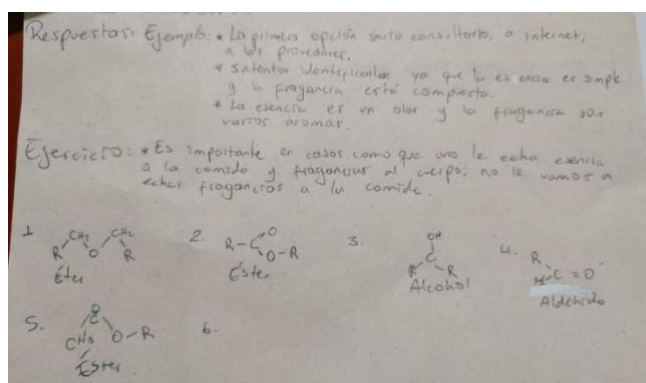 Respuestas: Ejemplo: * La primera opción sería consultarlo, a internet,
a los proveedores.
* Intentar identificarlos, ya que la esencia es simple
y la fragancia está compuesta.
* La esencia es un olor y la fragancia son
varios aromas.
Ejercicio: * Es importante en casos como que uno le echa esencia
a la comida y fragancias al cuerpo, no le vamos a
echar fragancias a la comida.
1 R CH2 O CH2 R
Éter
2. R-C O O-R
Éster
3. OH C R R
Alcohol
4. R H C=O
Aldehído
5. CH3 O-R
Ester
6.